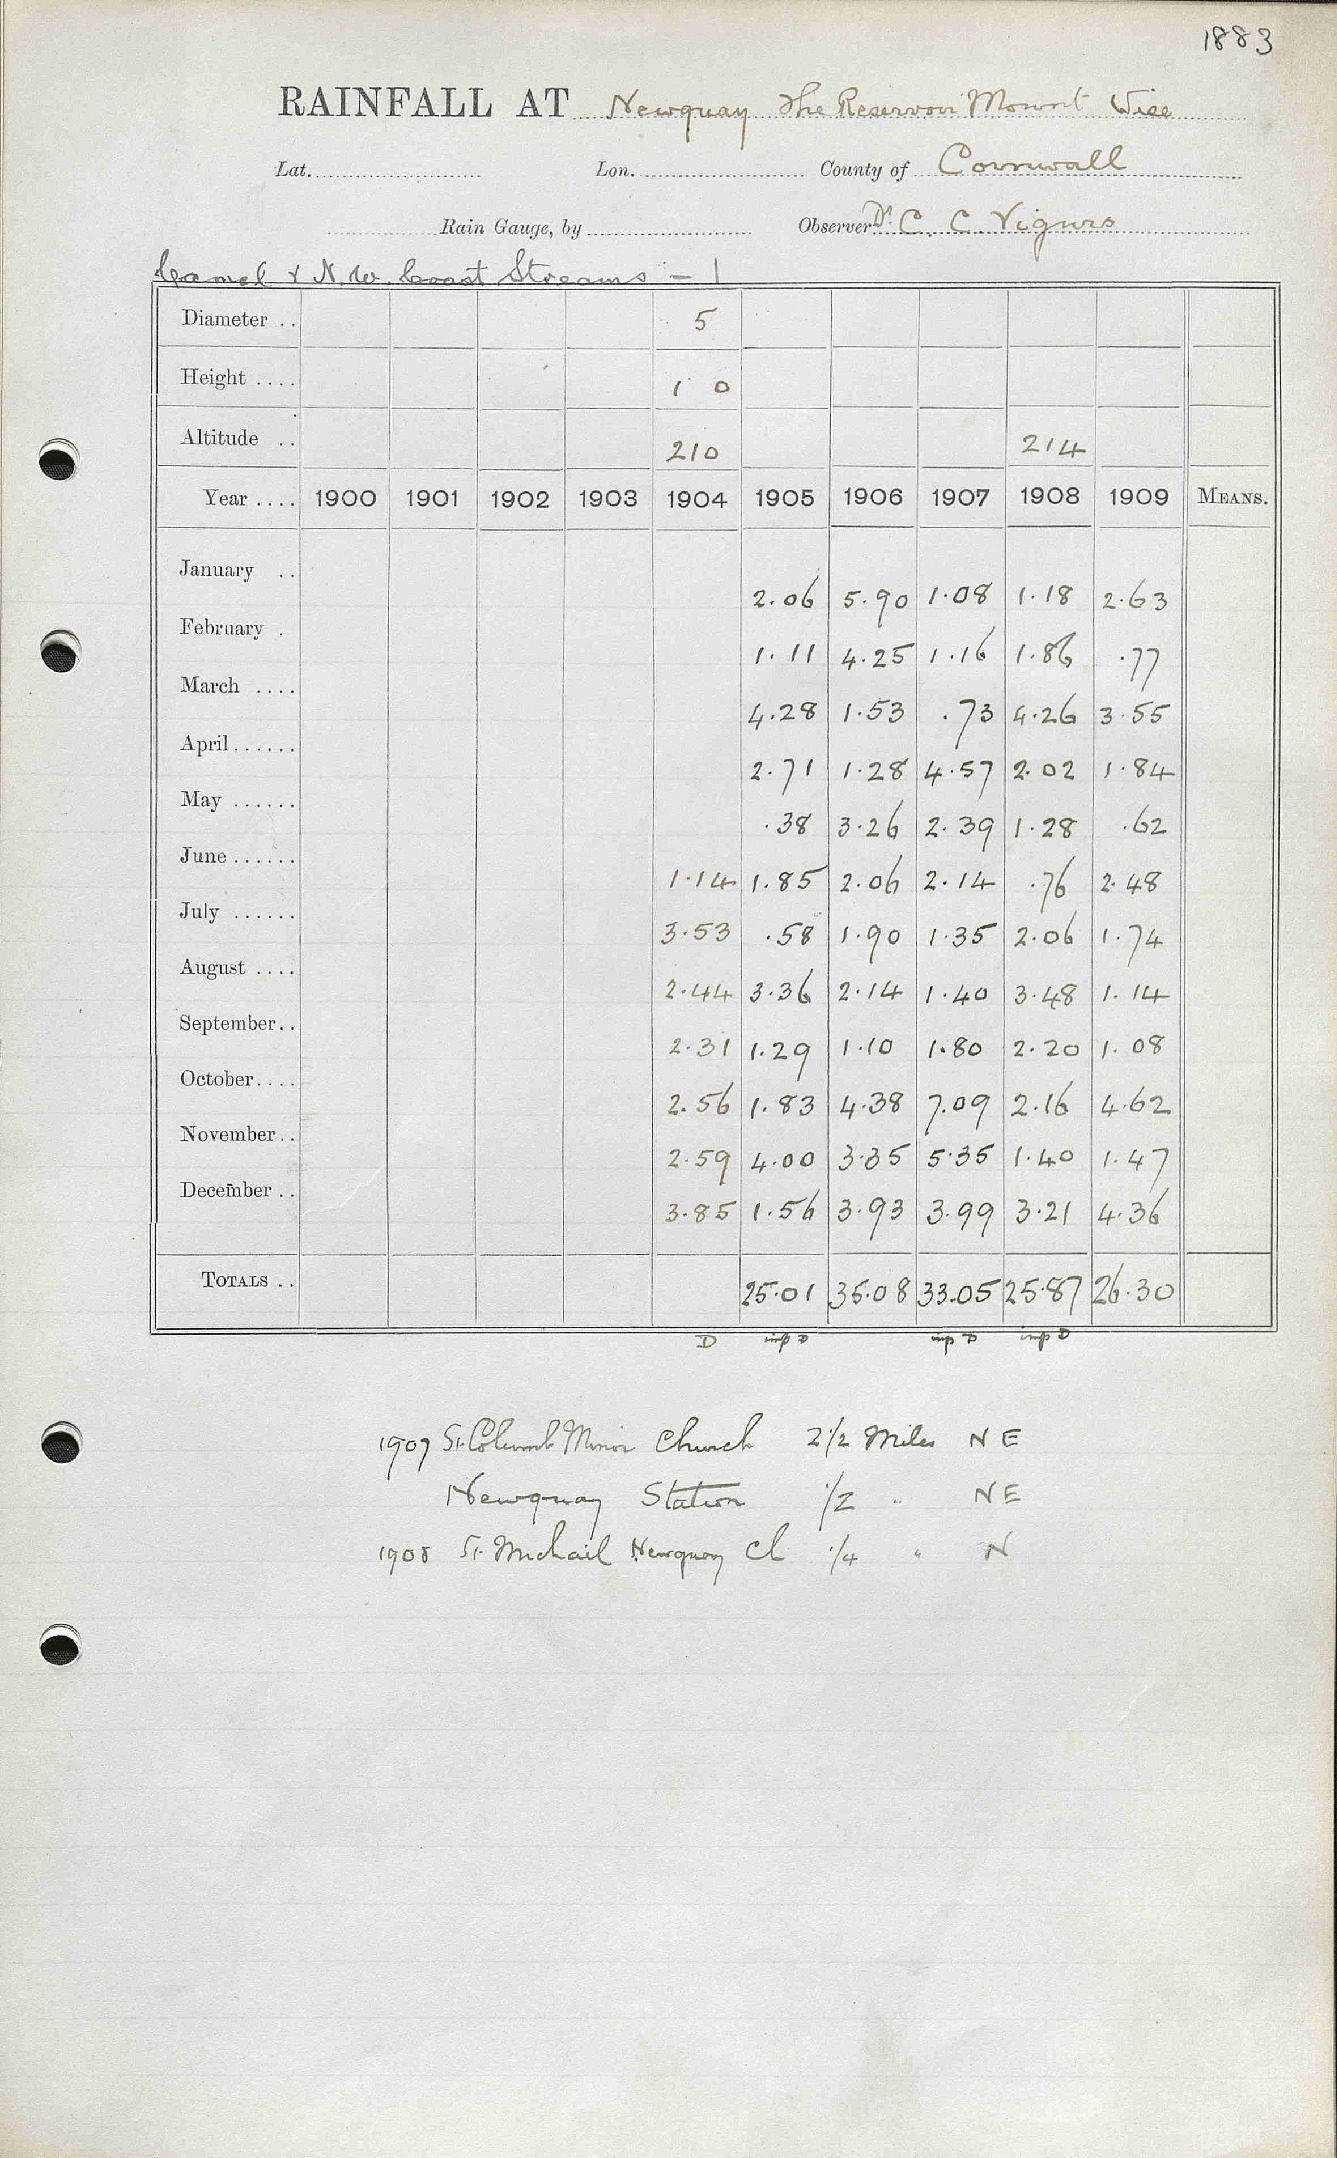 1883
RAINFALL AT Newquay The Reservoir Mount Wise
Lat. Lon. County of Cornwall
Rain Gauge, by Observer Dr. C. C. Vigurs
Camel & N.W. Coast Streams - 1
Diameter .. 5
Height .... 1 0
Altitude .. 210 214
Year .... 1900 1901 1902 1903 1904 1905 1906 1907 1908 1909 MEANS.
January .. 2.06 5.90 1.08 1.18 2.63
February . 1.11 4.25 1.16 1.86 .77
March .... 4.28 1.53 .73 4.26 3.55
April...... 2.71 1.28 4.57 2.02 1.84
May ...... .38 3.26 2.39 1.28 .62
June ...... 1.14 1.85 2.06 2.14 .76 2.48
July ...... 3.53 .58 1.90 1.35 2.06 1.74
August .... 2.44 3.36 2.14 1.40 3.48 1.14
September.. 2.31 1.29 1.10 1.80 2.20 1.08
October.... 2.56 1.83 4.38 7.09 2.16 4.62
November.. 2.59 4.00 3.35 5.35 1.40 1.47
December .. 3.85 1.56 3.93 3.99 3.21 4.36
TOTALS .. 25.01 35.08 33.05 25.87 26.30
D imp D imp D imp D
1907 St. Columb Minor Church 2 1/2 Miles NE
Newquay Station 1/2 " NE
1908 St. Michail Newquay Ch 1/4 " N